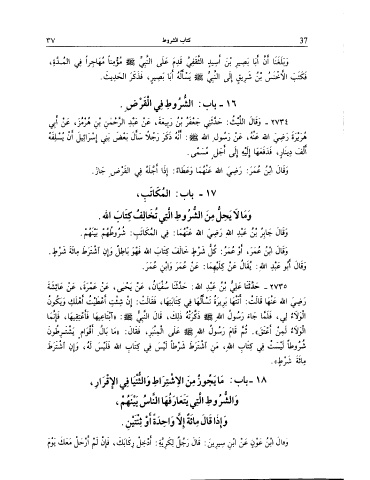 37 كتاب الشروط ٣٧
وَبَلَغَنَا أَنَّ أَبَا بَصِيرِ بْنَ أَسِيدٍ الثَّقَفِيَّ قَدِمَ عَلَى النَّبِيِّ ﷺ مُؤْمِناً مُهَاجِراً فِي المُدَّةِ،
فَكَتَبَ الأَخْنَسُ بْنُ شَرِيقٍ إِلَى النَّبِيِّ ﷺ يَسْأَلُهُ أَبَا بَصِيرٍ، فَذَكَرَ الحَدِيثَ.
١٦ - باب: الشُّرُوطِ فِي القَرْضِ.
٢٧٣٤ - وَقَالَ اللَّيْثُ: حَدَّثَنِي جَعْفَرُ بْنُ رَبِيعَةَ، عَنْ عَبْدِ الرَّحْمٰنِ بْنِ هُرْمُزَ، عَنْ أَبِي
هُرَيْرَةَ رَضِيَ اللَّهُ عَنْهُ، عَنْ رَسُولِ اللهِ ﷺ: أَنَّهُ ذَكَرَ رَجُلاً سَأَلَ بَعْضَ بَنِي إِسْرَائِيلَ أَنْ يُسْلِفَهُ
أَلْفَ دِينَارٍ، فَدَفَعَهَا إِلَيْهِ إِلَى أَجَلٍ مُسَمًّى.
وَقَالَ ابْنُ عُمَرَ: رَضِيَ اللَّهُ عَنْهُمَا وَعَطَاءٌ: إِذَا أَجَّلَهُ فِي القَرْضِ جَازَ.
١٧ - باب: المُكَاتَبِ،
وَمَا لاَ يَحِلُّ مِنَ الشُّرُوطِ الَّتِي تُخَالِفُ كِتَابَ اللهِ.
وَقَالَ جَابِرُ بْنُ عَبْدِ اللهِ رَضِيَ اللَّهُ عَنْهُمَا: فِي المُكَاتَبِ: شُرُوطُهُمْ بَيْنَهُمْ.
وَقَالَ ابْنُ عُمَرَ، أَوْ عُمَرُ: كُلُّ شَرْطٍ خَالَفَ كِتَابَ اللهِ فَهُوَ بَاطِلٌ وَإِنْ اشْتَرَطَ مِائَةَ شَرْطٍ.
وَقَالَ أَبُو عَبْدِ اللهِ: يُقَالُ عَنْ كِلَيْهِمَا: عَنْ عُمَرَ وَابْنِ عُمَرَ.
٢٧٣٥ - حَدَّثَنَا عَلِيُّ بْنُ عَبْدِ اللهِ: حَدَّثَنَا سُفْيَانُ، عَنْ يَحْيَى، عَنْ عَمْرَةَ، عَنْ عَائِشَةَ
رَضِيَ اللَّهُ عَنْهَا قَالَتْ: أَتَتْهَا بَرِيرَةُ تَسْأَلُهَا فِي كِتَابَتِهَا، فَقَالَتْ: إِنْ شِئْتِ أَعْطَيْتُ أَهْلَكِ وَيَكُونُ
الوَلاَءُ لِي، فَلَمَّا جَاءَ رَسُولُ اللهِ ﷺ ذَكَّرْتُهُ ذٰلِكَ، قَالَ النَّبِيُّ ﷺ: «ابْتَاعِيهَا فَأَعْتِقِيهَا، فَإِنَّمَا
الوَلاَءُ لِمَنْ أَعْتَقَ». ثُمَّ قَامَ رَسُولُ اللهِ ﷺ عَلَى المِنْبَرِ، فَقَالَ: «مَا بَالُ أَقْوَامٍ يَشْتَرِطُونَ
شُرُوطاً لَيْسَتْ فِي كِتَابِ اللهِ، مَنِ اشْتَرَطَ شَرْطاً لَيْسَ فِي كِتَابِ اللهِ فَلَيْسَ لَهُ، وَإِنِ اشْتَرَطَ
مِائَةَ شَرْطٍ».
١٨ - باب: مَا يَجُوزُ مِنَ الاشْتِرَاطِ وَالثُّنْيَا فِي الإِقْرَارِ،
وَالشُّرُوطِ الَّتِي يَتَعَارَفُهَا النَّاسُ بَيْنَهُمْ،
وَإِذَا قَالَ مِائَةٌ إِلاَّ وَاحِدَةً أَوْ ثِنْتَيْنِ.
وَقَالَ ابْنُ عَوْنٍ عَنْ ابْنِ سِيرِينَ: قَالَ رَجُلٌ لِكَرِيِّهِ: أَدْخِلْ رِكَابَكَ، فَإِنْ لَمْ أَرْحَلْ مَعَكَ يَوْمَ